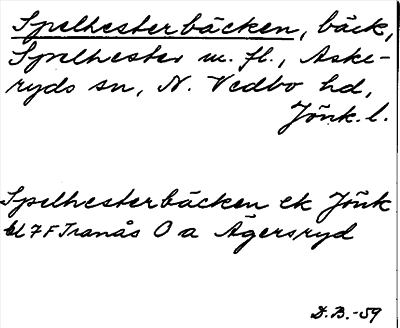 Spelhesterbäcken, bäck,
Spelhester m. fl., Aske-
ryds sn, N. Vedbo hd,
Jönk. l.
Spelhesterbäcken ek Jönk
bl 7F Tranås O a Ägersryd
D.B.-59